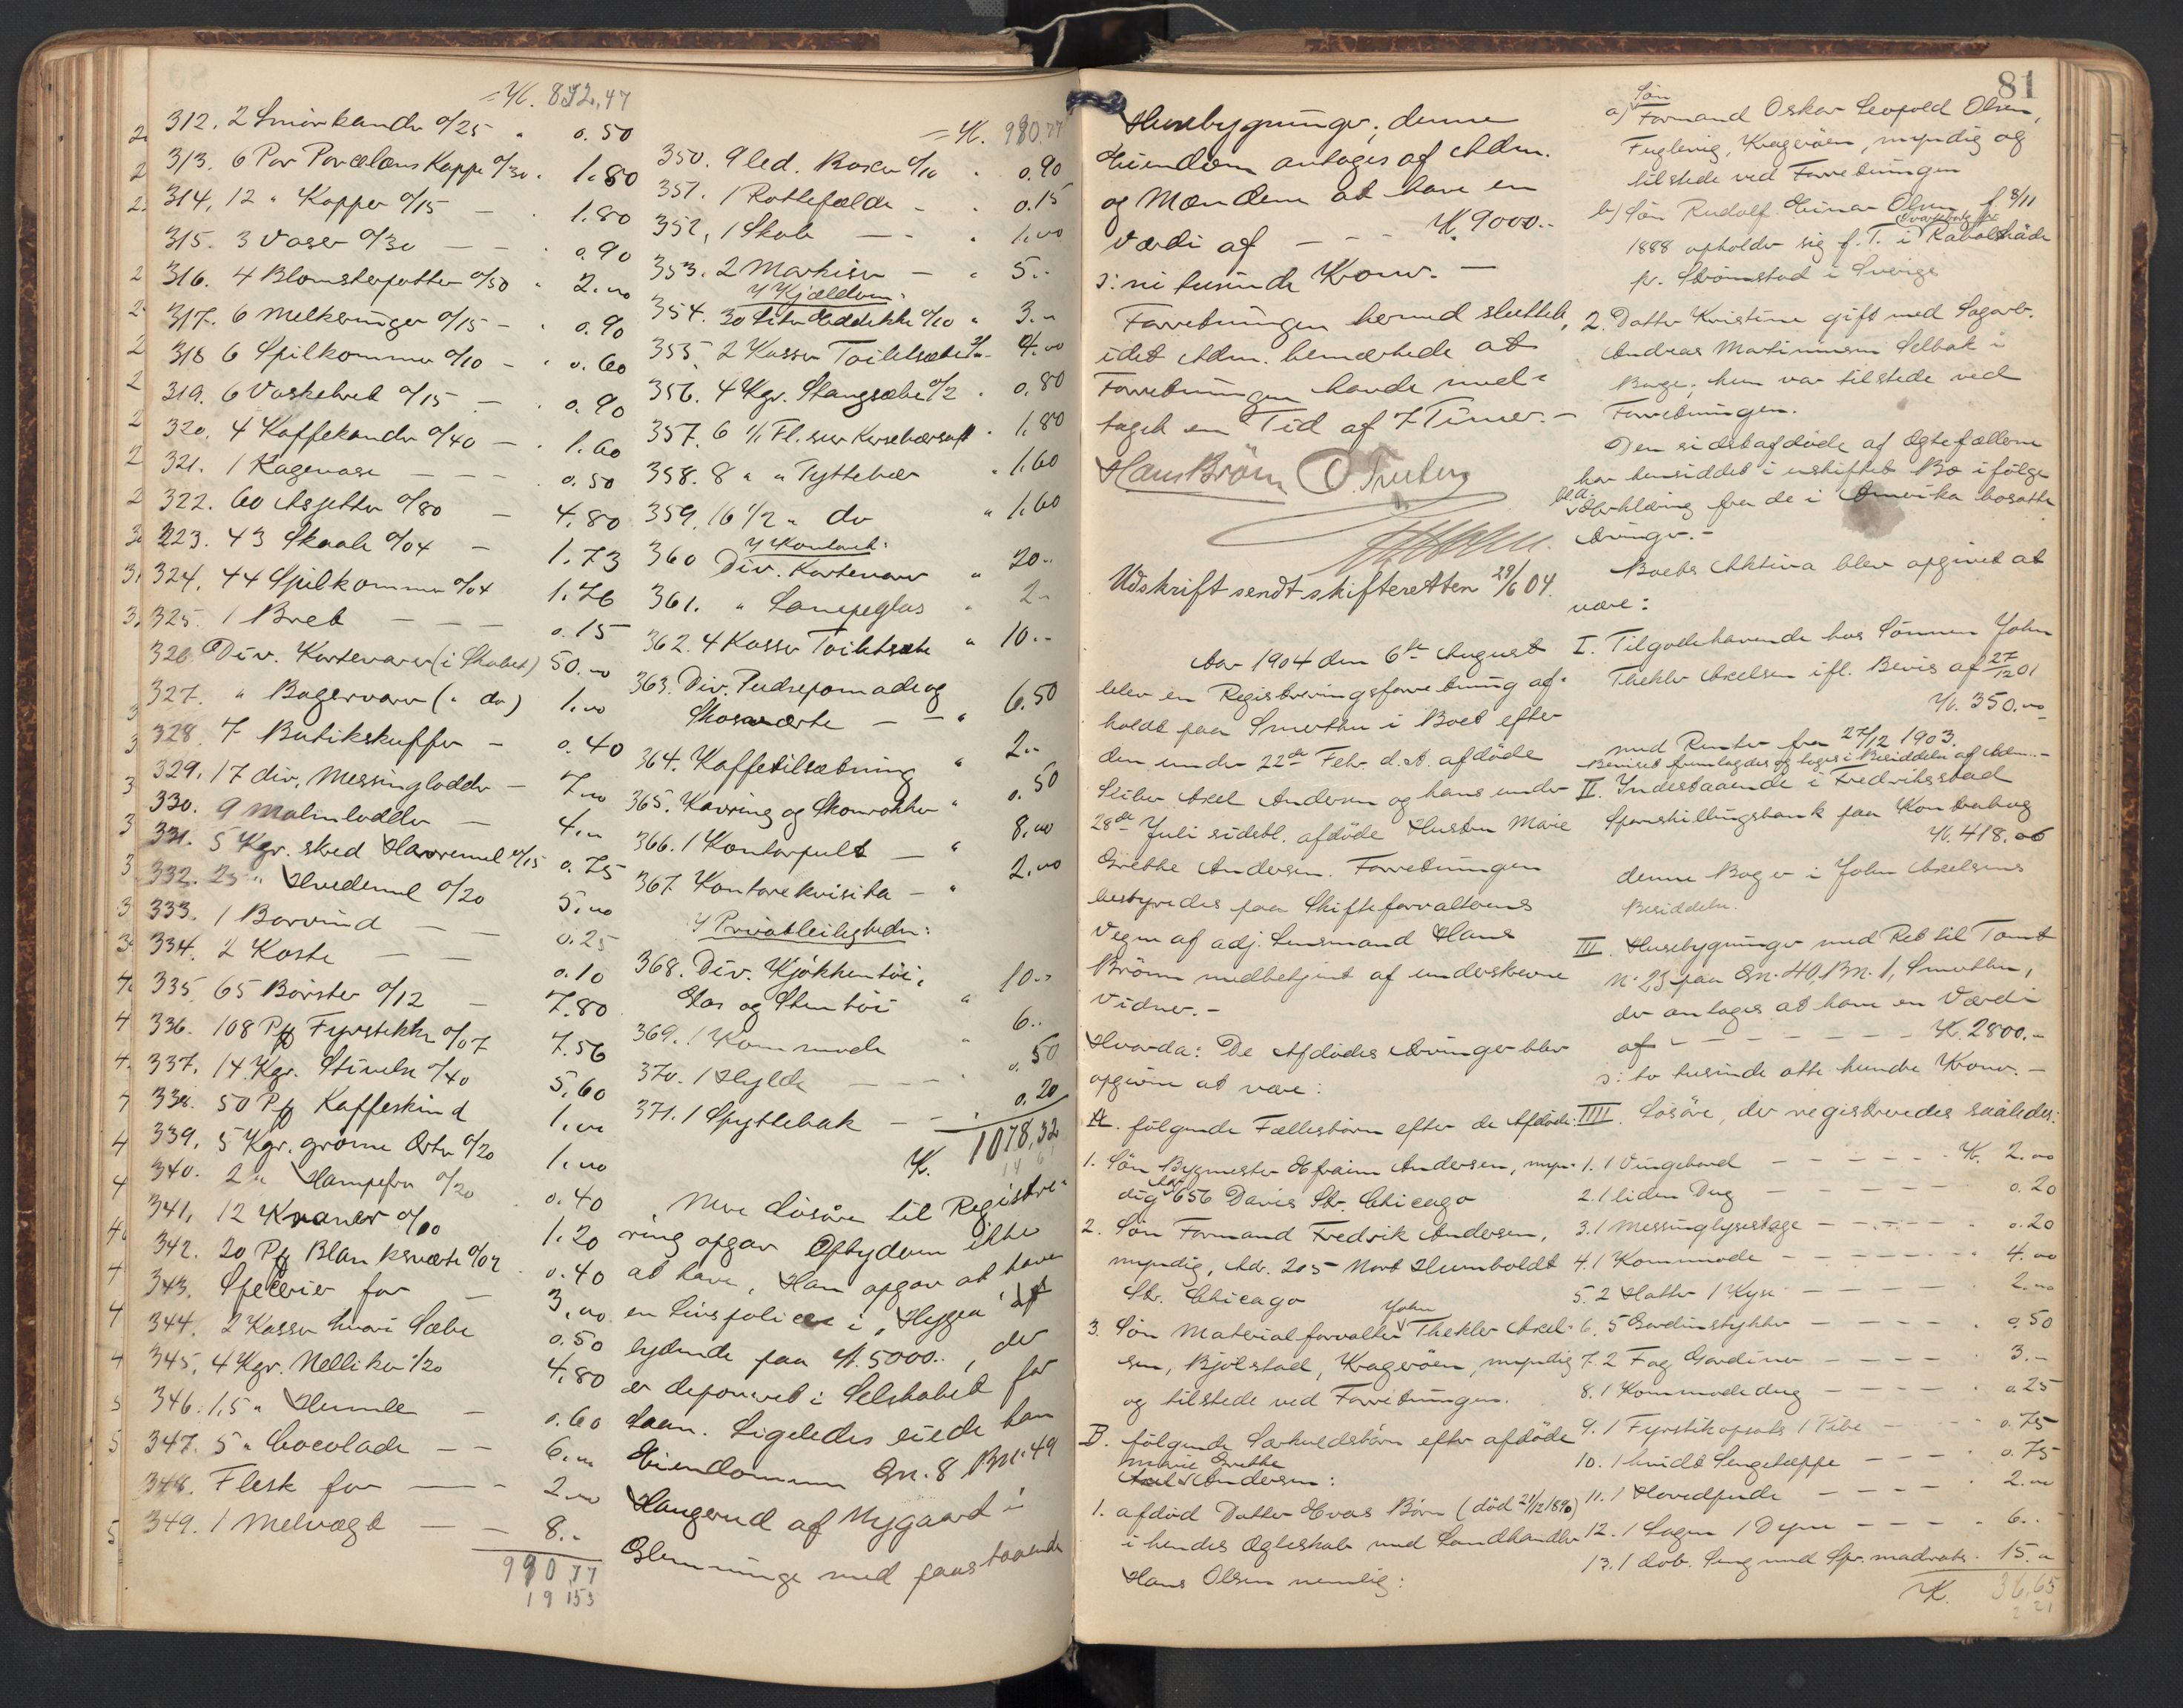 = K. 892,47
312. 2 Smörkander a/25 " 0.50
313. 6 Par Porcelæns Kopper a/30 " 1.80
314. 12 " Kopper a/15 — " 1.80
315. 3 Vaser a/30 — — " 0.90
316. 4 Blomsterpotter a/50 " 2.00
317. 6 Melkeringer a/15 — " 0.90
318 6 Spilkommer a/10 — " 0.60
319. 6 Vaskebret a/15 — " 0.90
320. 4 Kaffekander a/40 — " 1.60
321. 1 Kagevase — — — 0.50
322. 60 Asjetter a/80 — 4.80
323. 43 Skaale a/04 — 1.73
324. 44 Spilkommer a/04 1.76
325. 1 Bret — — — 0.15
326 Div. Kortevarer (i Skabet) 50.00
327. " Bagervarer (" do) 1.00
328. 7 Butikskuffer — 0.40
329. 17 div. Messinglodder — 7.00
330. 9 Malmlodder — 4.00
331. 5 Kgr. skred Havremel a/15 0.75
332. 25 " Hvedemel a/20 5.00
333. 1 Borvind — — 0.25
334. 2 Koste — — 0.10
335. 65 Börster a/12 — 7.80
336. 108 Pk Fyrstikker a/07 7.56
337. 14 Kgr. Stivelse a/40 5.60
338. 50 Pk Kaffeskind 1.00
339. 5 Kgr. grönne Erter a/20 1.00
340. 2 " Hampefrø a/20 0.40
341. 12 Kraner a/10 1.20
342. 20 Pk Blanksværte a/02 0.40
343. Specerier for — 3.00
344. 2 Kasser hvori Sæbe 0.50
345. 4 Kgr. Nelliker 1/20 4.80
346. 1,5 " Humle — 0.60
347. 5 " Chocolade — — 6.00
348. Flesk for — — 2.00
349. 1 Melvægt — — 8.-
980,77
= K. 980.77
350. 9 led. Kasser a/10 " 0.90
351. 1 Rottefælde — " 0.15
352. 1 Skab — — " 1.00
353. 2 Markiser — " 5.-
I Kjælderen:
354. 30 Liter Eddikke a/10 " 3.-
355. 2 Kasser Toiletsæbe a/2.- 4.00
356. 4 Kgr. Stangsæbe a/2 " 0.80
357. 6 1/1 Fl. sur Kirsebærsaft " 1.80
358. 8 " " Tyttebær " 1.60
359. 16 1/2 " do " 1.60
I Kontoret:
360 Div. Kortevarer " 20.-
361. " Lampeglas " 2.-
362. 4 Kasser Toiletsæbe " 10.-
363. Div. Pudsepomade og
Skosværte — — " 6.50
364. Kaffetilsætning " 2.-
365. Kavring og Skonrokker " 0.50
366. 1 Kontorpult — " 8.00
367. Kontorrekvisita — " 2.00
I Privatleiligheden:
368. Div. Kjökkentöi,
Glas og Stentöi " 10.-
369. 1 Kommode " 6.-
370. 1 Hylde — — " 0.50
371. 1 Spyttebak — " 0.20
K. 1078,32
Mere Lösöre til Registre-
ring opgav Opbyderen ikke
at have. Han opgav at have
en Livspolice i "Hygea" af
lydende paa K. 5000.-, der
er deponeret i Selskabet for
Laan. Ligeledes eiede han
Eiendommen Gn. 8 Bn. 49
Haugerud af Nygaard i
Glemminge med paastaaende
81
Husebygninger; denne
Eiendom antages af Adm.
og Mændene at have en
Værdi af — — — K. 9000.-
ɔ: ni tusinde Kroner. —
Forretningen hermed sluttet,
idet Adm. bemærkede at
Forretningen havde med-
taget en Tid af 7 Timer. —
Hans Brönn
Udskrift sendt skifteretten 29/6 04.
Aar 1904 den 6te August
blev en Registreringsforretning af-
holdt paa Smertu i Boet efter
den under 22de Febr. d. A. afdöde
Axel Andersen og hans under
28de Juli sidstl. afdöde Hustru Marie
Grethe Andersen. Forretningen
bestyredes paa Skifteforvalterens
Vegne af adj. Lensmand Hans
Brönn medbetjent af underskrevne
Vidner. —
Hvorda: De Afdödes Arvinger blev
opgivne at være:
A. fölgende Fællesbörn efter de Afdöde:
1. Sön Bygmester Efraim Andersen, myn-
dig Adr. 656 Davis Str. Chicago
2. Sön Formand Fredrik Andersen,
myndig, Adr. 205 Nort Humboldt
Str. Chicago
3. Sön Materialforvalter John Thekler Axel-
sen, Bjölstad, Kragerøen, myndig
og tilstede ved Forretningen.
B. fölgende Særkuldsbörn efter afdöde
Marie Grethe
Andersen:
1. afdöd Datter Evas Börn (död 21/12 1890)
i hendes Ægteskab med Landhandler
Hans Olsen nemlig:
a) Sön
Formand Oskar Leopold Olsen,
Fuglevig, Kragerøen, myndig og
tilstede ved Forretningen
b) Sön Rudolf Einar Olsen f. 8/11
1888 opholder sig f. T. i
pr. Strömstad i Sverige
2. Datter Kristine gift med Sagarb.
Andreas Martinsen Selbak i
Borge; hun var tilstede ved
Forretningen.
Den sidstafdöde af Ægtefællerne
har hensiddet i uskiftet Bo ifölge
bl. a. Erklæring fra de i Amerika bosatte
Arvinger. —
Boets Aktiva blev opgivet at
være:
I. Tilgodehavende hos Sönnen John
Thekler Axelsen ifl. Bevis af 27/12 01
K. 350.00
med Renter fra 27/12 1903.
Beviset fremlagdes og tages i Besiddelse af Adm. —
II. Indestaaende i Fredriksstad
Sparskillingsbank paa Kontrabog
K. 418.06
denne Bog er i John Axelsens
Besiddelse.
III. Husebygninger med Ret til Tomt
No 23 paa Gn. 40, Bn. 1, Smertu,
der antages at have en Værdi
af — — — — K. 2800.-
ɔ: to tusinde otte hundre Kroner. —
IIII. Lösöre, der registreredes saaledes:
1. 1 Vingebord — — — K. 2.00
2. 1 liden Dug — — — 0.20
3. 1 Messinglysestage — — " 0.20
4. 1 Kommode — — — " 4.00
5. 2 Hatter 1 Kyse — — 2.00
6. 5 Gardinstykker — — " 0.50
7. 2 Fag Gardiner — — " 3.-
8. 1 Kommodedug — — " 0.25
9. 1 Fyrstikopsats 1 Pibe — " 0.75
10. 1 hvidt Sengetæppe — — " 0.75
11. 1 Hovedpude — — " 2.00
12. 1 Lagen 1 Dyne — — " 6.-
13. 1 dob. Seng med Spr. madrats. 15.00
K. 36.65